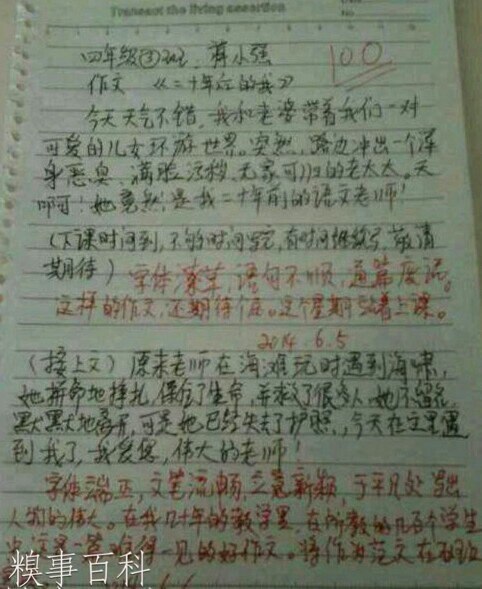 Transant the living assertion
四年级③班 蒋小强
100
作文 《二十年后的我》
今天天气不错,我和老婆带着我们一对
可爱的儿女环游世界。突然,路边冲出一个浑
身恶臭、满脸污秽、无家可归的老太太。天
啊!她竟然是我二十年前的语文老师!
(下课时间到,不够时间写完,有时间继续写,敬请
期待)字体潦草,语句不顺,通篇废话。
这样的作文,还期待个屁。这个星期站着上课。
2014.6.5
(接上文)原来老师在海滩玩时遇到海啸,
她拼命地挣扎,保全了生命,并救了很多人,她不留名,
默默地离开,可是她已经失去了护照,今天在这里遇
到我了,我爱您,伟大的老师!
字体端正,文笔流畅,立意新颖,于平凡处写出
人物的伟大。在我几十年的教学里,在所教的几百个学生
这是一篇难得一见的好作文。将作为范文在
糗事百科